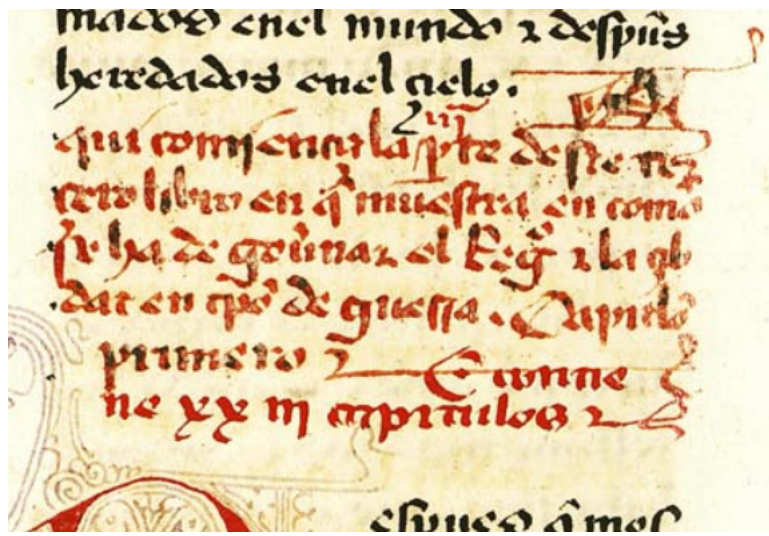 mados enel mundo ⁊ despũs
heredados enel cielo.
Aqui comiença la iijª pͭte deste ter
cero libro en q̃ muestra en como
se ha de gou̾nar el Regº ⁊ la çib
dat en tpõ de guerra. Capitulo
primero ⁊ E contie
ne xx iij capitulos ⁊
espues q̃ mos